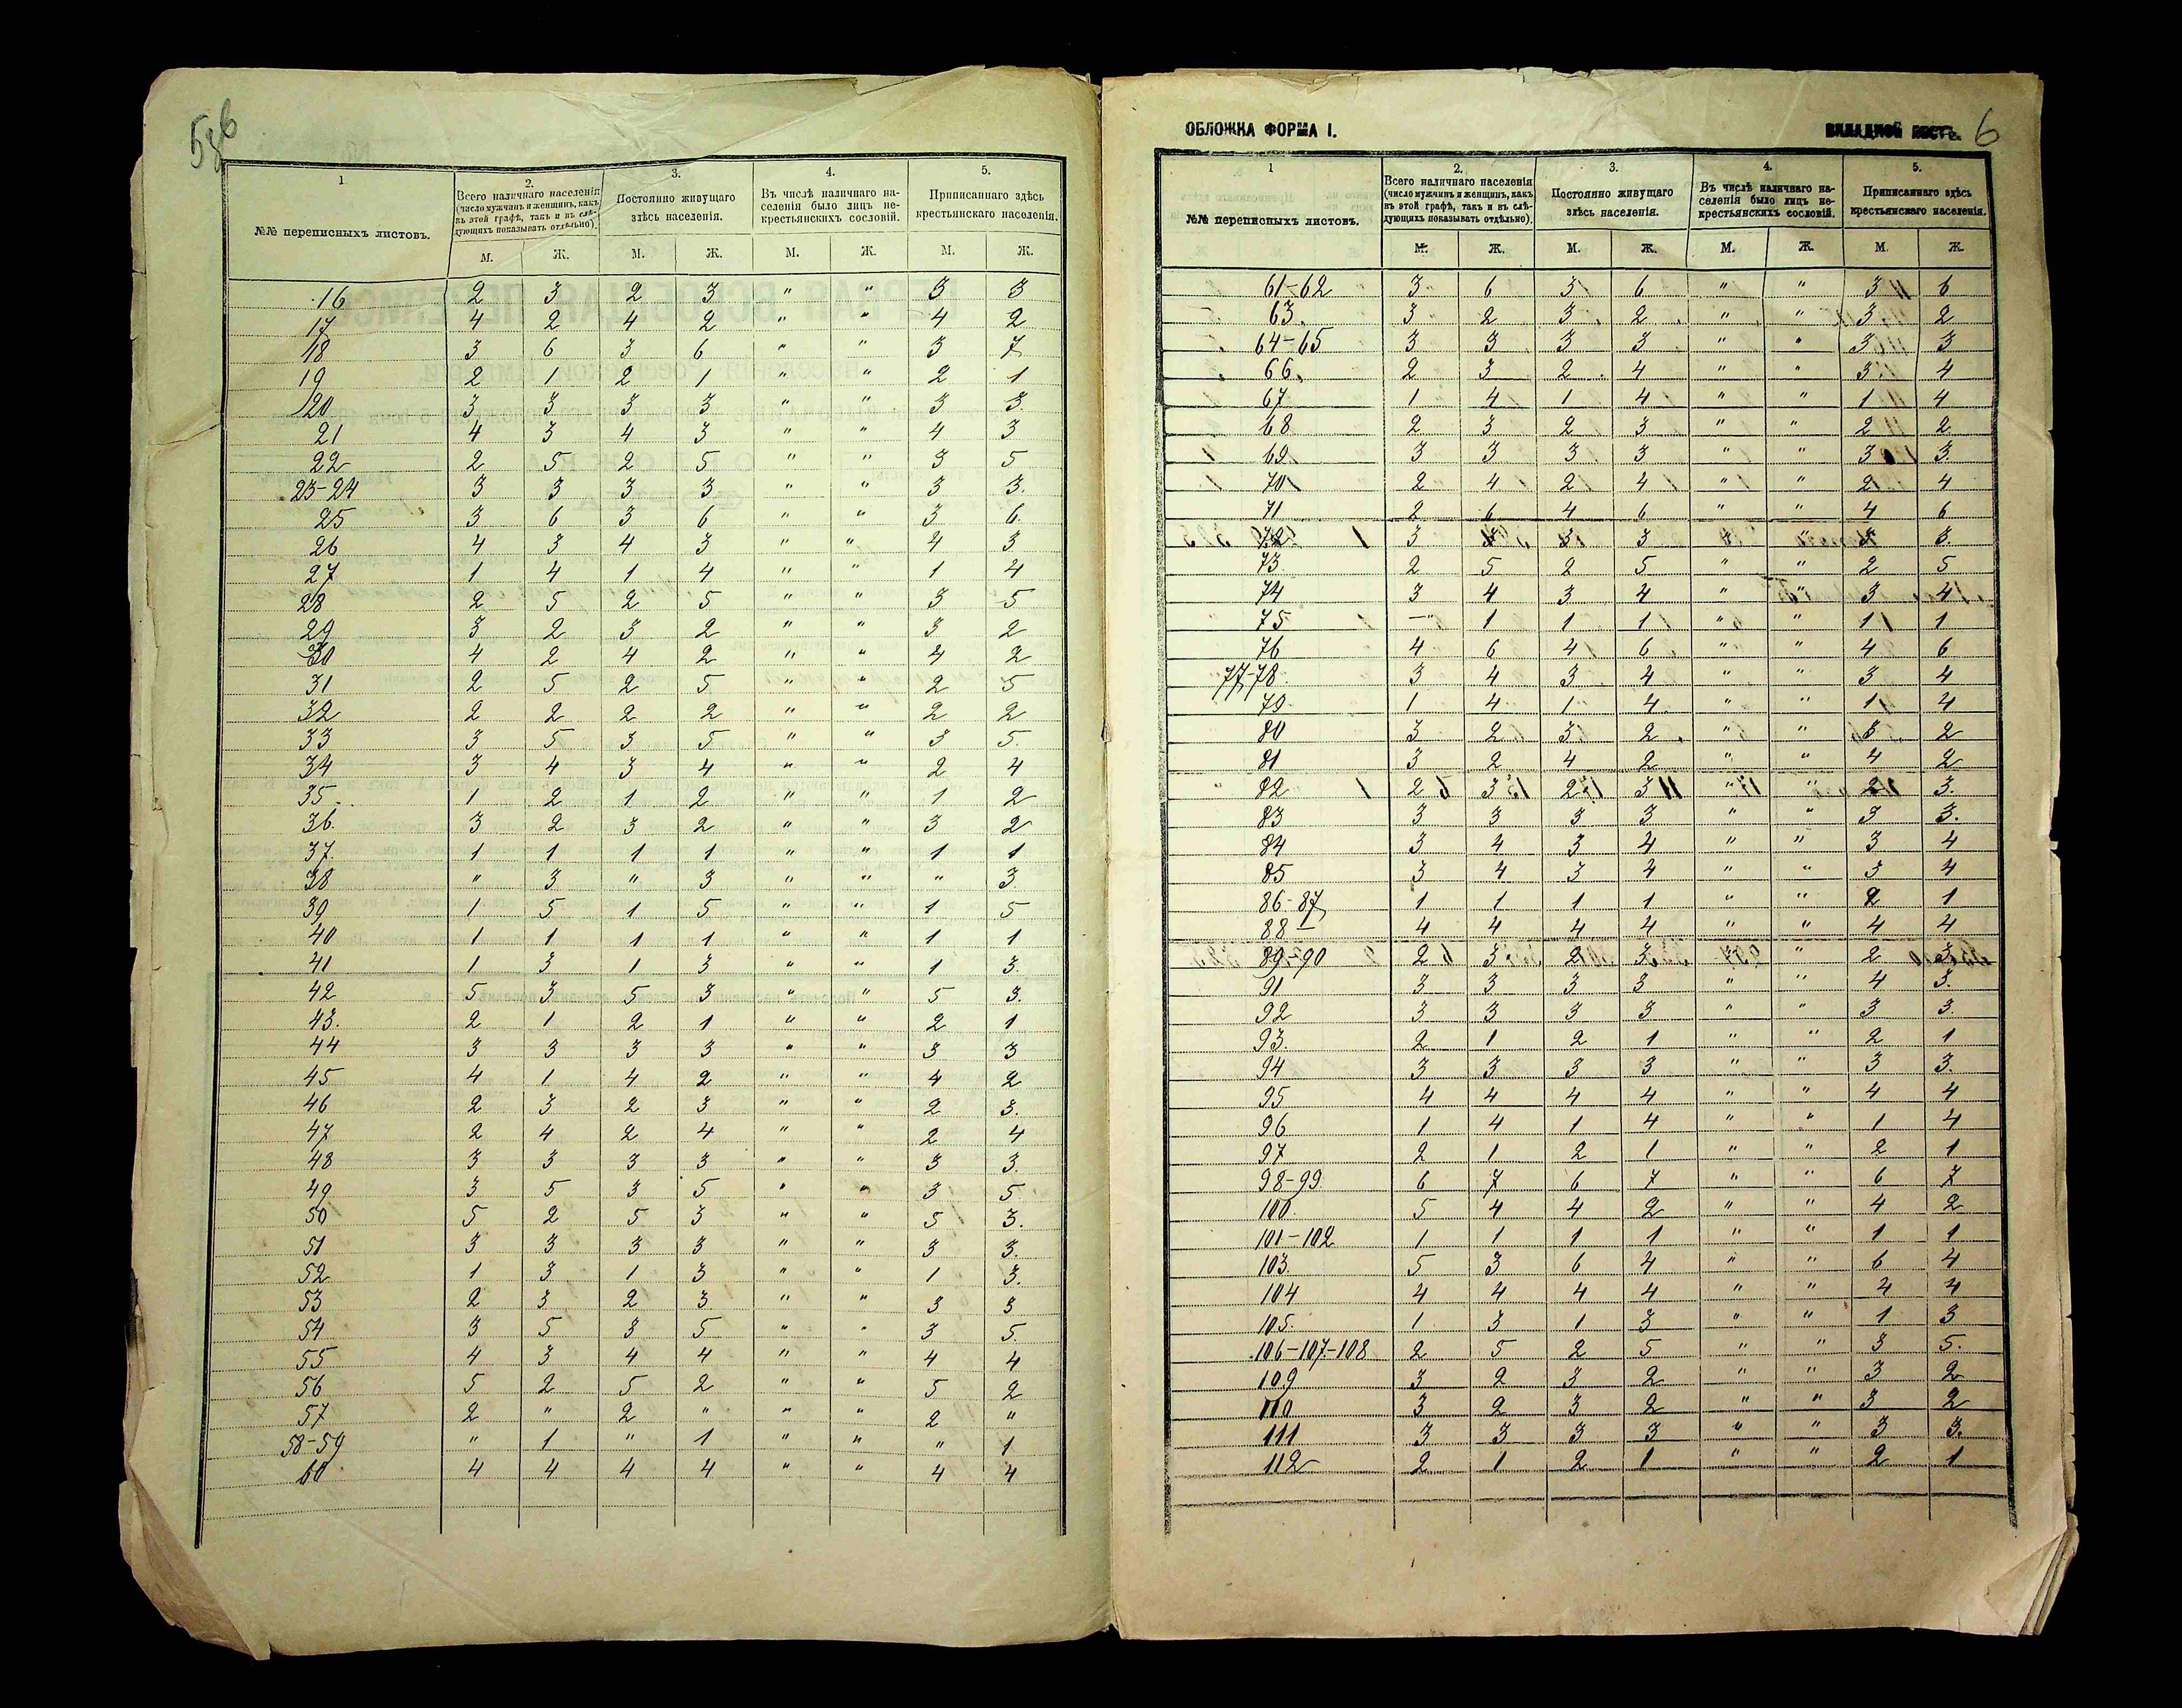 586
1.
2.
3.
4.
5.
№№ переписныхъ листовъ.
Всего наличнаго населенія (число мужчинъ и женщинъ, какъ въ этой графѣ, такъ и въ слѣдующихъ показывать отдѣльно).
Постоянно живущаго здѣсь населенія.
Въ числѣ наличнаго населенія было лицъ некрестьянскихъ сословій.
Приписаннаго здѣсь крестьянскаго населенія.
М. Ж. М. Ж. М. Ж. М. Ж.
16 2 3 2 3 " " 3 3
17 4 2 4 2 " " 4 2
18 3 6 3 6 " " 3 7
19 2 1 2 1 " " 2 1
20 3 3 3 3 " " 3 3.
21 4 3 4 3 " " 4 3
22 2 5 2 5 " " 3 5
23-24 3 3 3 3 " " 3 3.
25 3 6 3 6 " " 3 6
26 4 3 4 3 " " 4 3
27 1 4 1 4 " " 1 4
28 2 5 2 5 " " 3 5
29 3 2 3 2 " " 3 2
30 4 2 4 2 " " 4 2
31 2 5 2 5 " " 2 5
32 2 2 2 2 " " 2 2
33 3 5 3 5 " " 3 5.
34 3 4 3 4 " " 2 4
35 1 2 1 2 " " 1 2
36. 3 2 3 2 " " 3 2
37. 1 1 1 1 " " 1 1
38 " 3 " 3 " " " 3
39 1 5 1 5 " " 1 5
40 1 1 1 1 " " 1 1
41 1 3 1 3 " " 1 3
42 5 3 5 3 " " 5 3.
43. 2 1 2 1 " " 2 1
44 3 3 3 3 " " 3 3
45 4 1 4 2 " " 4 2
46 2 3 2 3 " " 2 3.
47 2 4 2 4 " " 2 4
48 3 3 3 3 " " 3 3.
49 3 5 3 5 " " 3 5
50 5 2 5 3 " " 5 3.
51 3 3 3 3 " " 3 3.
52 1 3 1 3 " " 1 3.
53 2 3 2 3 " " 3 3
54 3 5 3 5 " " 3 5.
55 4 3 4 4 " " 4 4
56 5 2 5 2 " " 5 2
57 2 " 2 " " " 2 "
58-59 " 1 " 1 " " " 1
60 4 4 4 4 " " 4 4
ОБЛОЖКА ФОРМА I.
ВКЛАДНОЙ ЛИСТЪ. 6
1
2.
3.
4.
5.
№№ переписныхъ листовъ.
Всего наличнаго населенія (число мужчинъ и женщинъ, какъ въ этой графѣ, такъ и въ слѣдующихъ показывать отдѣльно).
Постоянно живущаго здѣсь населенія.
Въ числѣ наличнаго населенія было лицъ некрестьянскихъ сословій.
Приписаннаго здѣсь крестьянскаго населенія.
М. Ж. М. Ж. М. Ж. М. Ж.
61-62 3 6 3 6 " " 3 6
63. 3 2 3 2 " " 3 2
64-65 3 3 3 3 " " 3 3
66. 2 3 2 4 " " 3 4
67 1 4 1 4 " " 1 4
68 2 3 2 3 " " 2 2
69. 3 3 3 3 " " 3 3.
70 2 4 2 4 " " 2 4
71 2 6 4 6 " " 4 6
72 3 3 3 " 3.
73 2 5 2 5 " " 2 5
74 3 4 3 4 " " 3 4
75 -" 1 1 1 " " 1 1
76 4 6 4 6 " " 4 6
77-78 3 4 3 4 " " 3 4
79. 1 4 1 4 " " 1 4
80 3 2 3 2 " " 3 2
81 3 2 4 2 " " 4 2
82 2 3 2 3 " " 2 3.
83 3 3 3 3 " " 3 3.
84 3 4 3 4 " " 3 4
85 3 4 3 4 " " 3 4
86-87 1 1 1 1 " " 2 1
88 4 4 4 4 " " 4 4
89-90 2 3 2 3 " 2 3
91 3 3 3 3 " " 4 3.
92 3 3 3 3 " " 3 3.
93. 2 1 2 1 " " 2 1
94 3 3 3 3 " " 3 3.
95 4 4 4 4 " " 4 4
96 1 4 1 4 " " 1 4
97 2 1 2 1 " " 2 1
98-99 6 7 6 7 " " 6 7
100. 5 4 4 2 " " 4 2
101-102 1 1 1 1 " " 1 1
103. 5 3 6 4 " " 6 4
104 4 4 4 4 " " 4 4
105. 1 3 1 3 " " 1 3
106-107-108 2 5 2 5 " " 3 5.
109 3 2 3 2 " " 3 2
110 3 2 3 2 " " 3 2
111 3 3 3 3 " " 3 3.
112 2 1 2 1 " " 2 1